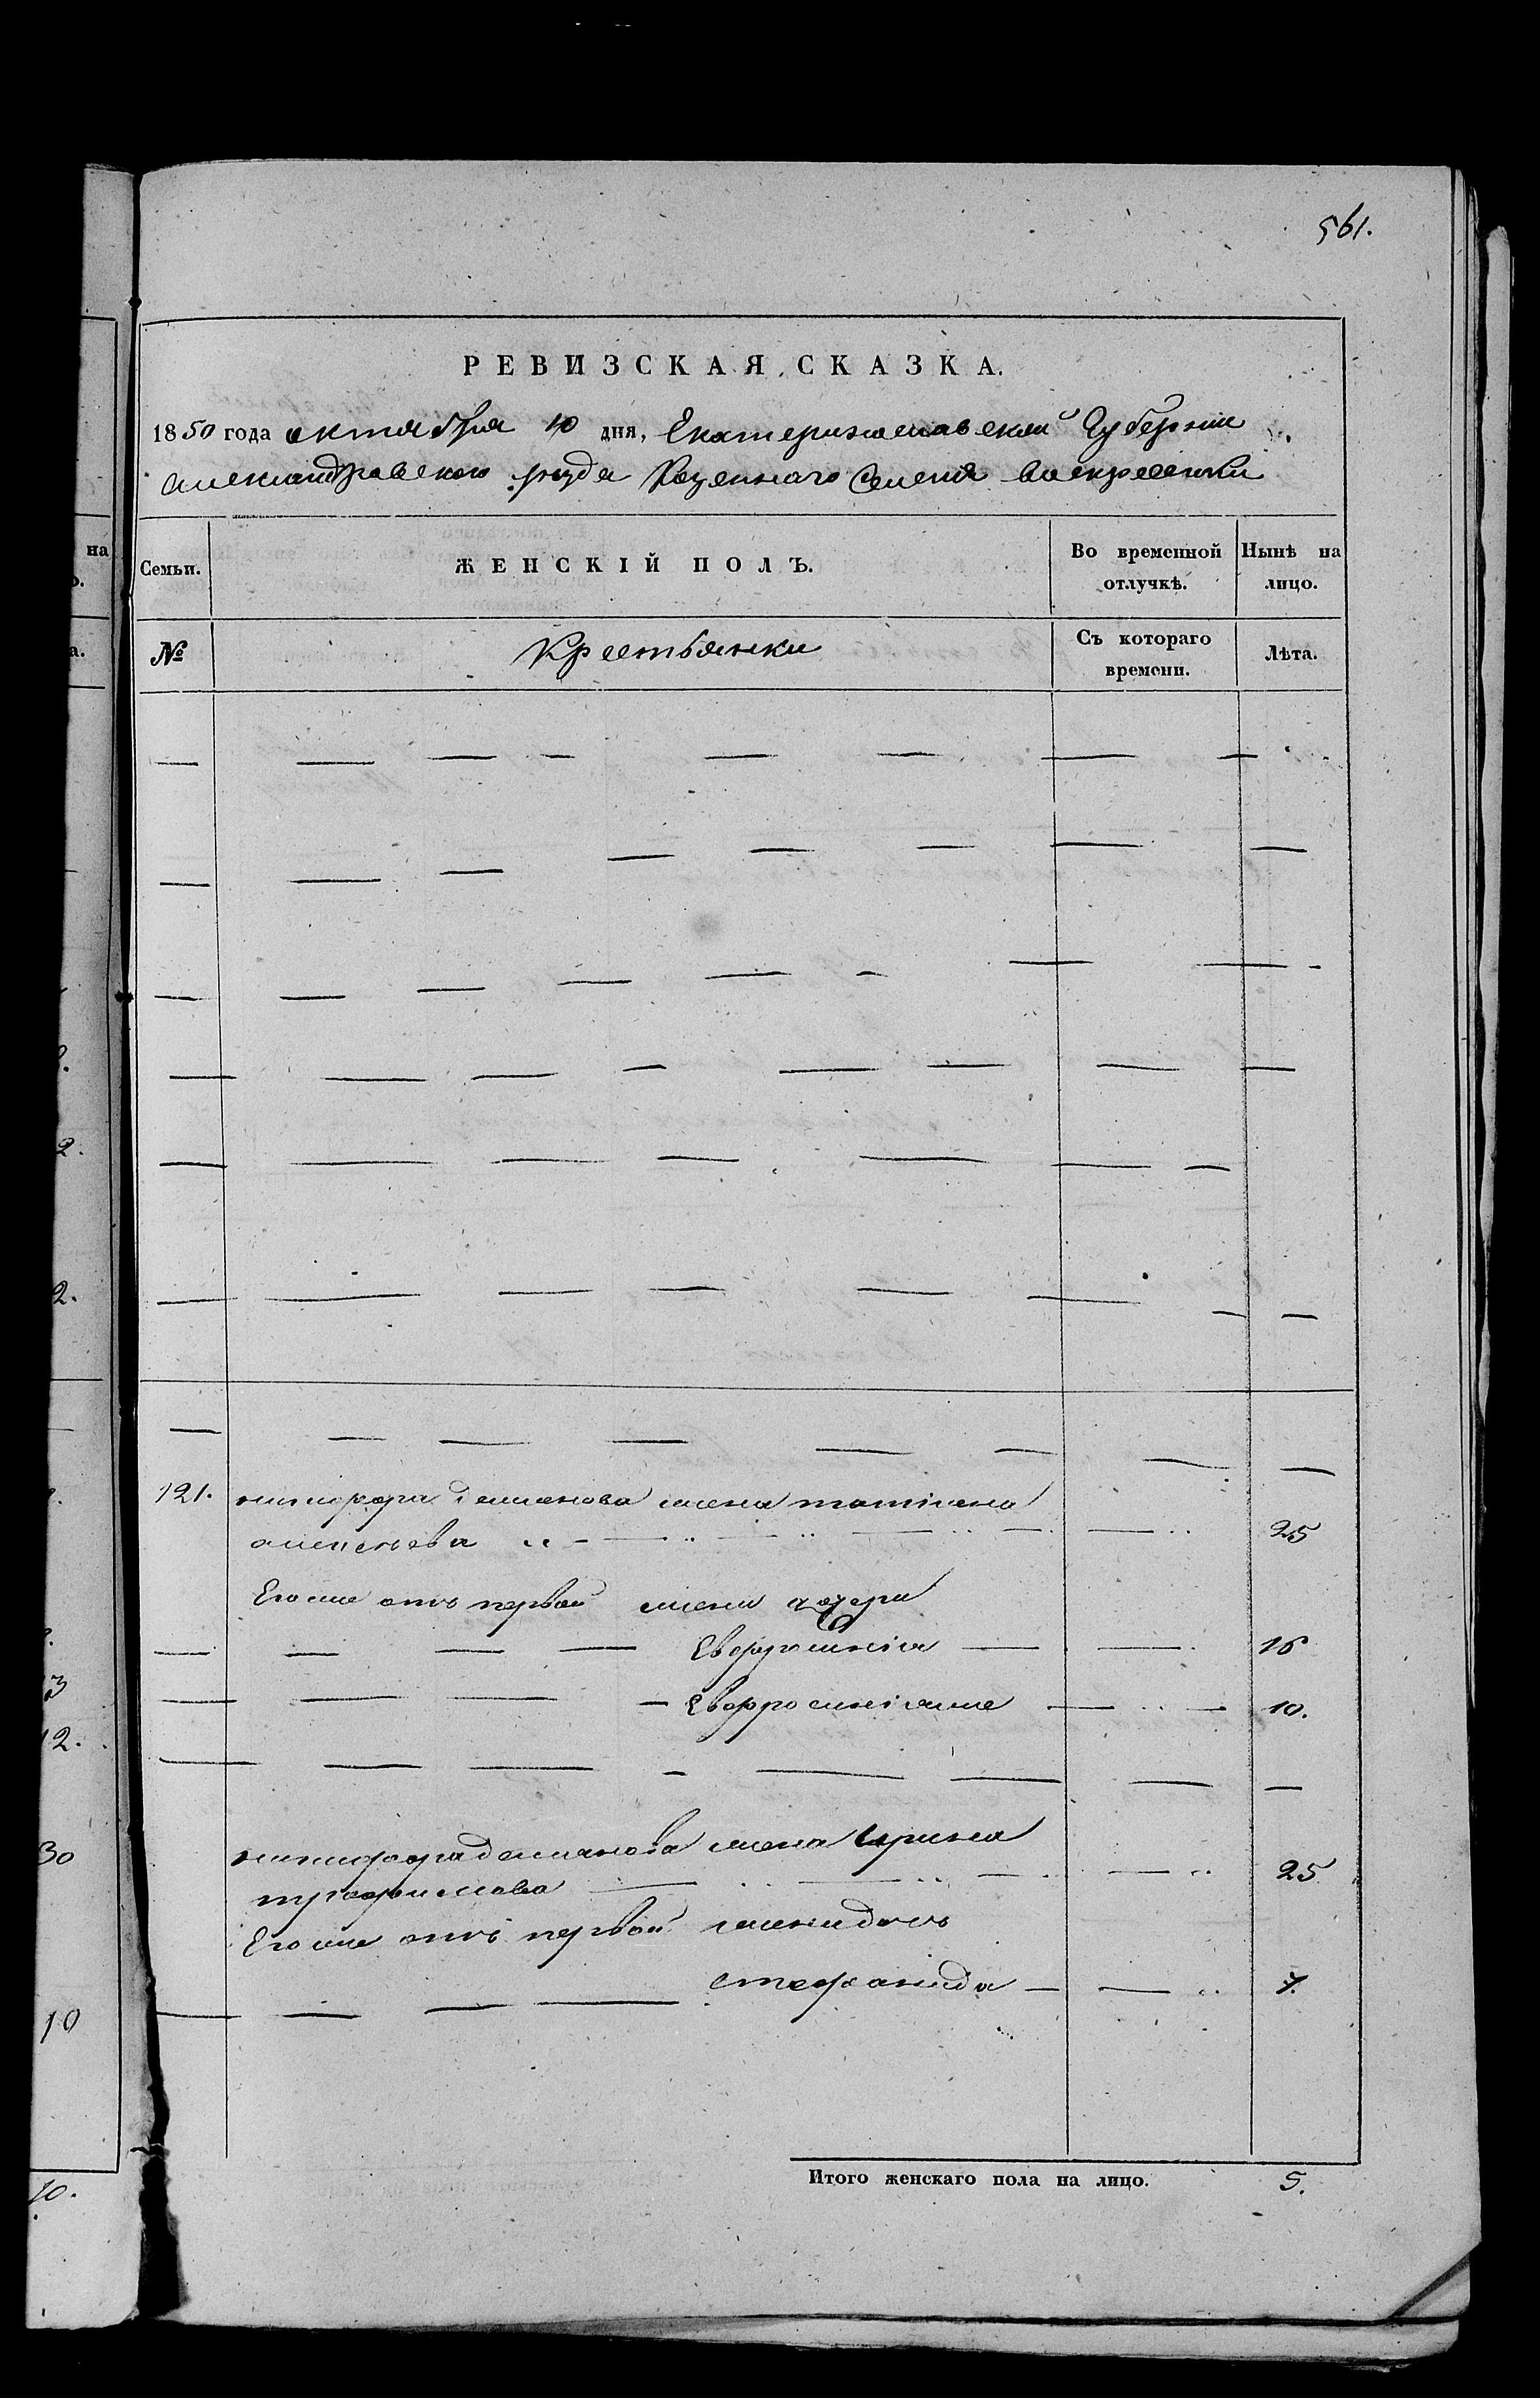 561.
РЕВИЗСКАЯ СКАЗКА.
1850 года октября 10 дня, Екатеринославской Губернии
Александровского уезда Казенного Селения Воскресенки
на
Семьи.
ЖЕНСКІЙ ПОЛЪ.
Во временной отлучкѣ.
Нынѣ на лицо.
а.
№
Крестьянки
Съ котораго времени.
Лѣта.
2.
2.
121. никифора демянова жена татіяна
алексѣева 25
Его же отъ первой жены дочери
Евфросинія 16
3
Евфросинія же 10.
12.
30
никифора демянова жена Ирина
трофимова 25
Его же отъ первой жены дочь
стефанида 7.
10
Итого женскаго пола на лицо. 5.
10.